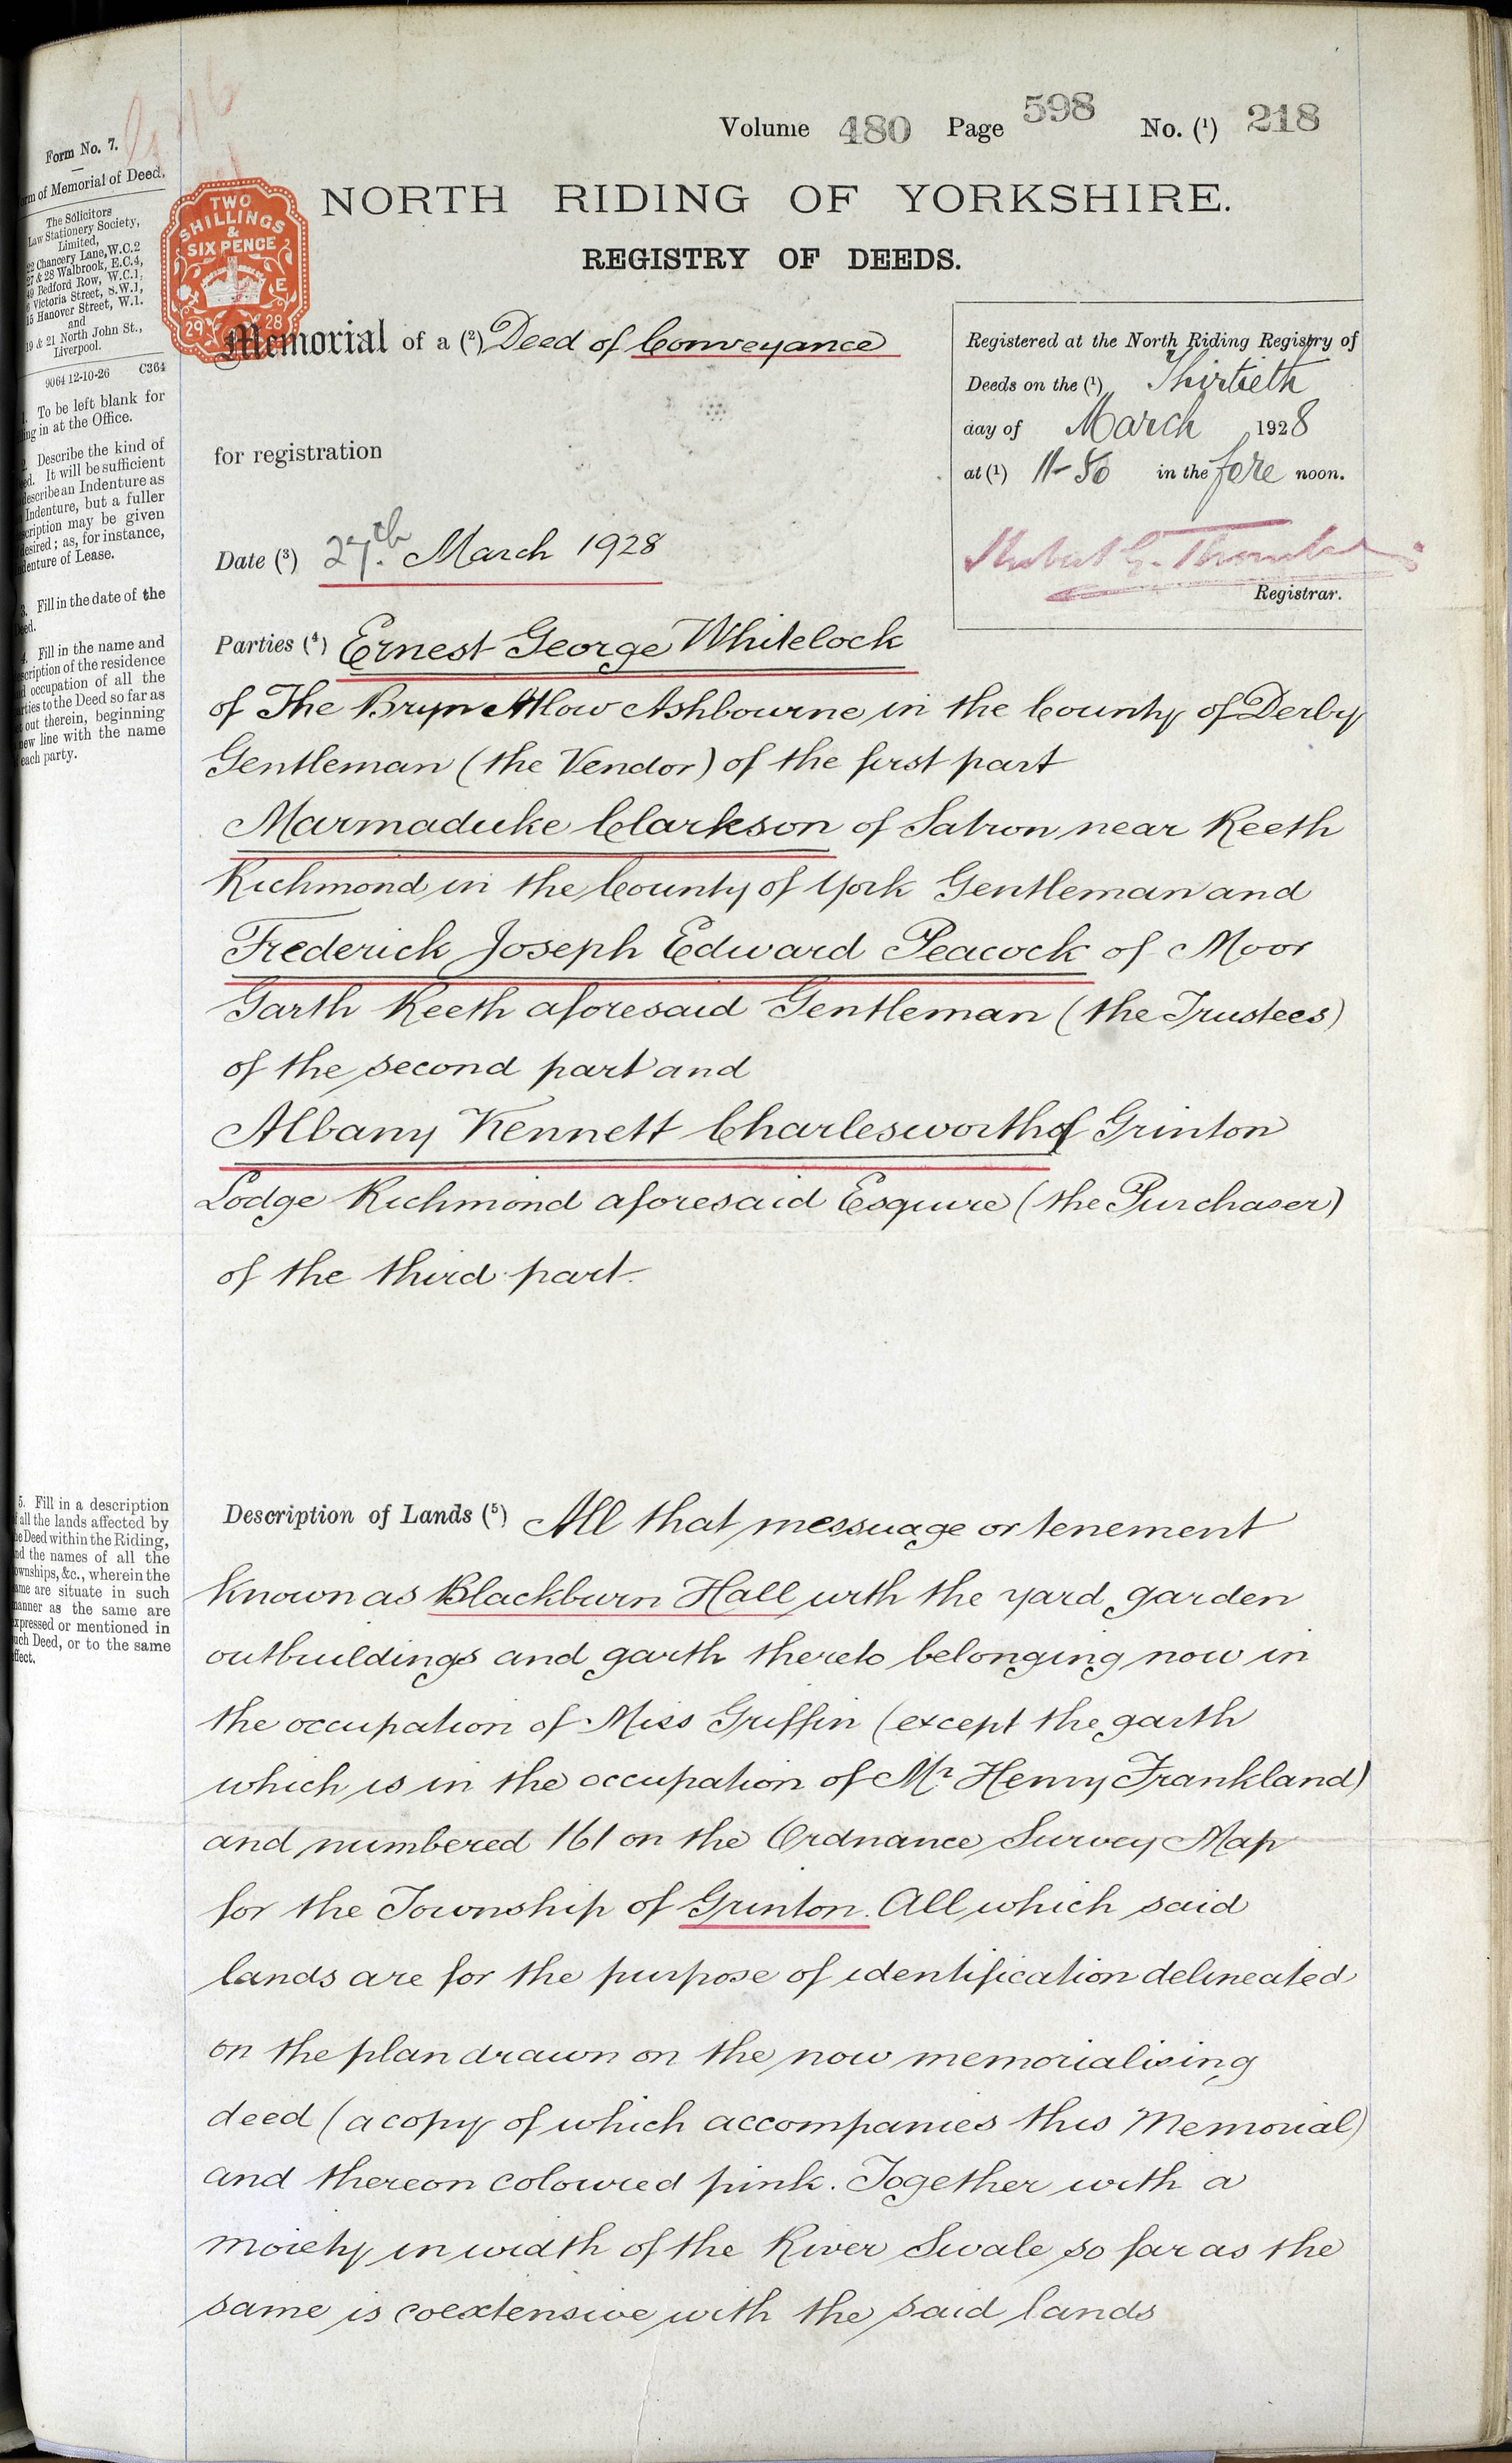 Volume 480 Page 598 No. (1) 218
NORTH RIDING OF YORKSHIRE.
REGISTRY OF DEEDS.
Form No. 7.
Form of Memorial of Deed.
The Solicitors
Law Stationery Society,
Limited,
22 Chancery Lane, W.C.2
27 & 28 Walbrook, E.C.4,
49 Bedford Row, W.C.1,
6 Victoria Street, S.W.1,
15 Hanover Street, W.1.
and
19 & 21 North John St.,
Liverpool.
9064 12-10-26 C364
TWO
SHILLINGS
&
SIX PENCE
E
29 28
Memorial of a (2) Deed of Conveyance
for registration
Registered at the North Riding Registry of
Deeds on the (1) Thirtieth
day of March 1928
at (1) 11-50 in the fore noon.
Registrar.
1. To be left blank for
filling in at the Office.
2. Describe the kind of
Deed. It will be sufficient
to describe an Indenture as
an Indenture, but a fuller
description may be given
if desired; as, for instance,
Indenture of Lease.
3. Fill in the date of the
Deed.
4. Fill in the name and
description of the residence
and occupation of all the
parties to the Deed so far as
set out therein, beginning
a new line with the name
of each party.
Date (3) 27th. March 1928
Parties (4) Ernest George Whitelock
of The Bryn Atlow Ashbourne in the County of Derby
Gentleman (the Vendor) of the first part
Marmaduke Clarkson of Satron near Reeth
Richmond in the County of York Gentleman and
Frederick Joseph Edward Peacock of Moor
Garth Reeth aforesaid Gentleman (the Trustees)
of the second part and
Albany Kennett Charlesworth of Grinton
Lodge Richmond aforesaid Esquire (the Purchaser)
of the third part.
5. Fill in a description
of all the lands affected by
the Deed within the Riding,
and the names of all the
Townships, &c., wherein the
same are situate in such
manner as the same are
expressed or mentioned in
such Deed, or to the same
effect.
Description of Lands (5) All that messuage or tenement
known as Blackburn Hall with the yard garden
outbuildings and garth thereto belonging now in
the occupation of Miss Griffin (except the garth
which is in the occupation of Mr Henry Frankland)
and numbered 161 on the Ordnance Survey Map
for the Township of Grinton. All which said
lands are for the purpose of identification delineated
on the plan drawn on the now memorialising
deed (a copy of which accompanies this Memorial)
and thereon coloured pink. Together with a
moiety in width of the River Swale so far as the
same is coextensive with the said lands